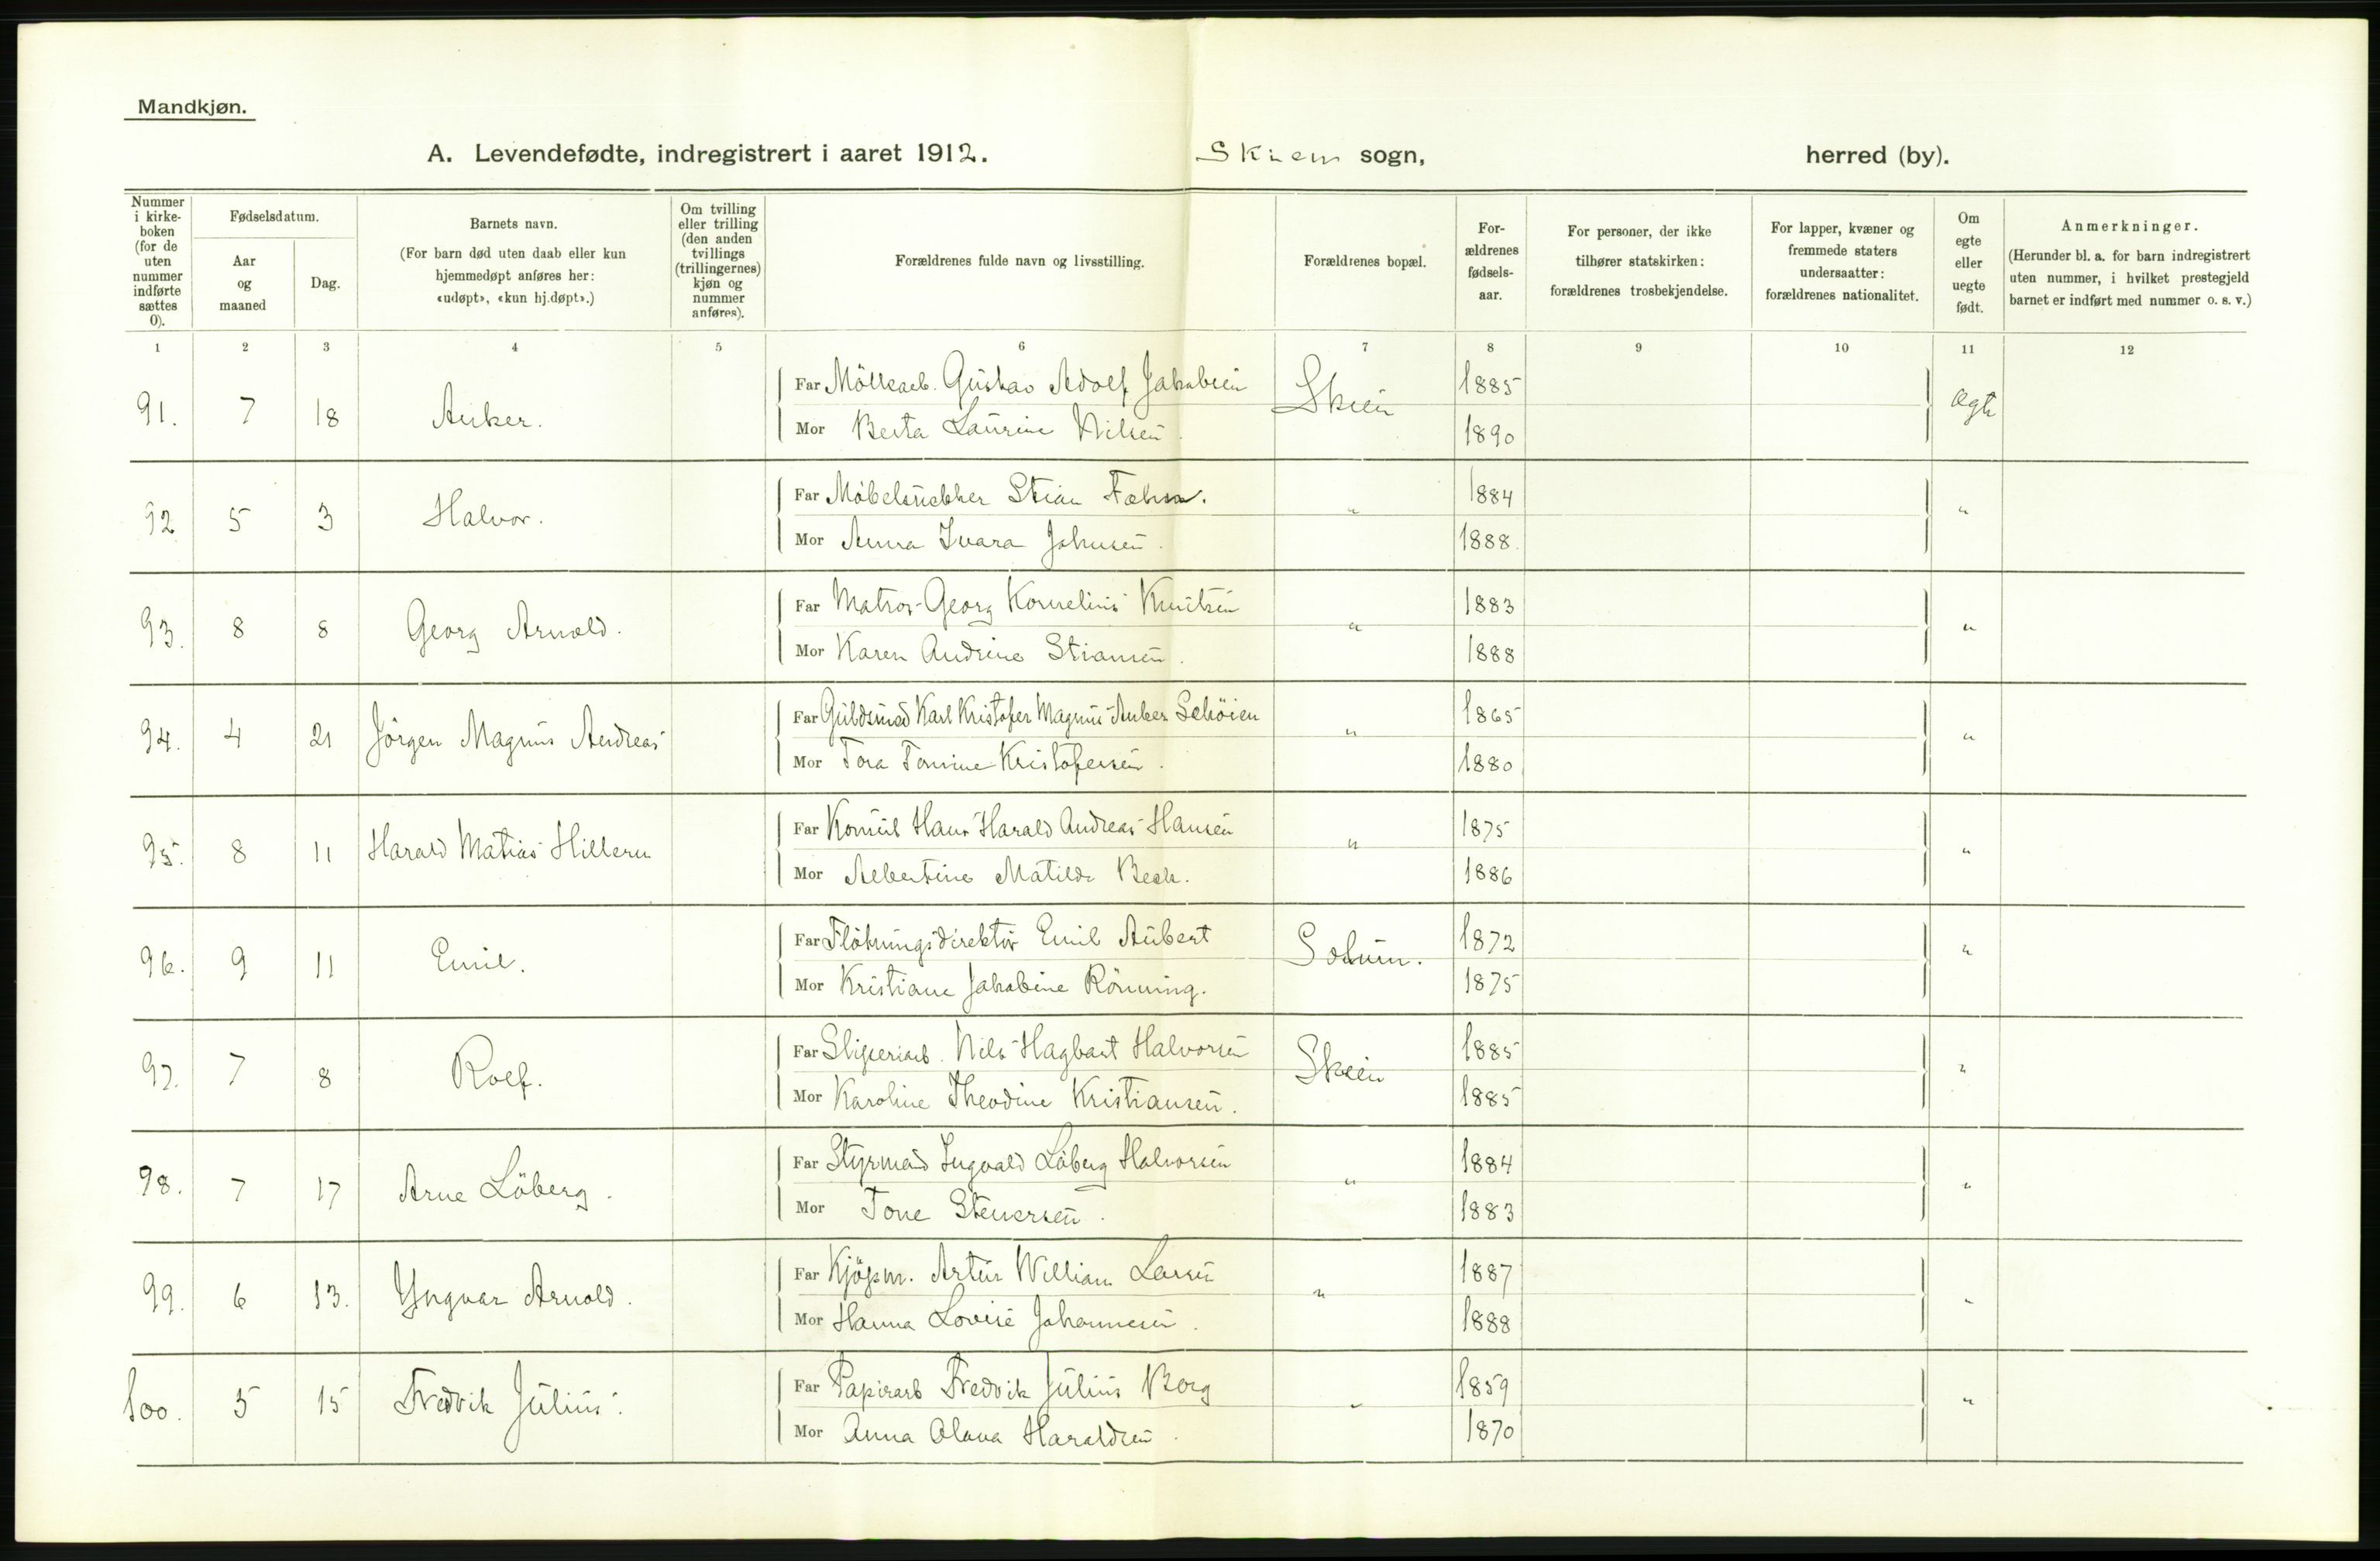 Mandkjøn.
A. Levendefødte, indregistrert i aaret 1912. Skien sogn, herred (by).
Nummer i kirkeboken (for de uten nummer indførte sættes 0).
Fødselsdatum.
Aar og maaned
Dag.
Barnets navn.
(For barn død uten daab eller kun hjemmedøpt anføres her: «udøpt», «kun hj.døpt».)
Om tvilling eller trilling (den anden tvillings (trillingernes) kjøn og nummer anføres).
Forældrenes fulde navn og livsstilling.
Forældrenes bopæl.
Forældrenes fødselsaar.
For personer, der ikke tilhører statskirken: forældrenes trosbekjendelse.
For lapper, kvæner og fremmede staters undersaatter: forældrenes nationalitet.
Om egte eller uegte født.
Anmerkninger.
(Herunder bl. a. for barn indregistrert uten nummer, i hvilket prestegjeld barnet er indført med nummer o. s. v.)
1 2 3 4 5 6 7 8 9 10 11 12
91. 7 18 Anker. Far Möllearb. Gustav Adolf Jakobsen Skien 1885 ægte
Mor Berta Laurine Nilsen. 1890
92 5 3 Halvor. Far Möbelsnekker Stian 1884 "
Mor Anna Ivara Johnsen. 1888.
93. 8 8 Georg Arnold. Far Matros Georg Kornelius Knutsen " 1883 "
Mor Karen Andrine Stiansen. 1888
94. 4 21 Jörgen Magnus Andreas Far Guldsmed Karl Kristofer Magnus Anker Schöien " 1865 "
Mor Tora Tomine Kristofersen. 1880
95. 8 11 Harald Matias Hillern Far Konsul Hans Harald Andreas Hansen " 1875 "
Mor Albertine Matilde Beck. 1886
96. 9 11 Emil. Far Flötningsdirektör Emil Aubert Solum. 1872 "
Mor Kristiane Jakobine Rönning. 1875
97. 7 8 Rolf. Far Sliperiarb. Nils Hagbart Halvorsen Skien 1885 "
Mor Karoline Theodine Kristiansen. 1885
98. 7 17 Arne Löberg. Far Styrmand Ingvald Löberg Halvorsen " 1884 "
Mor Tone Stenersen. 1883
99. 6 13. Yngvar Arnold. Far Kjöpm. Artur William Larsen " 1887 "
Mor Hanna Lovise Johannesen. 1888
100. 5 15 Fredrik Julius. Far Papirarb Fredrik Julius Borg " 1859 "
Mor Anna Olava Haraldsen. 1870